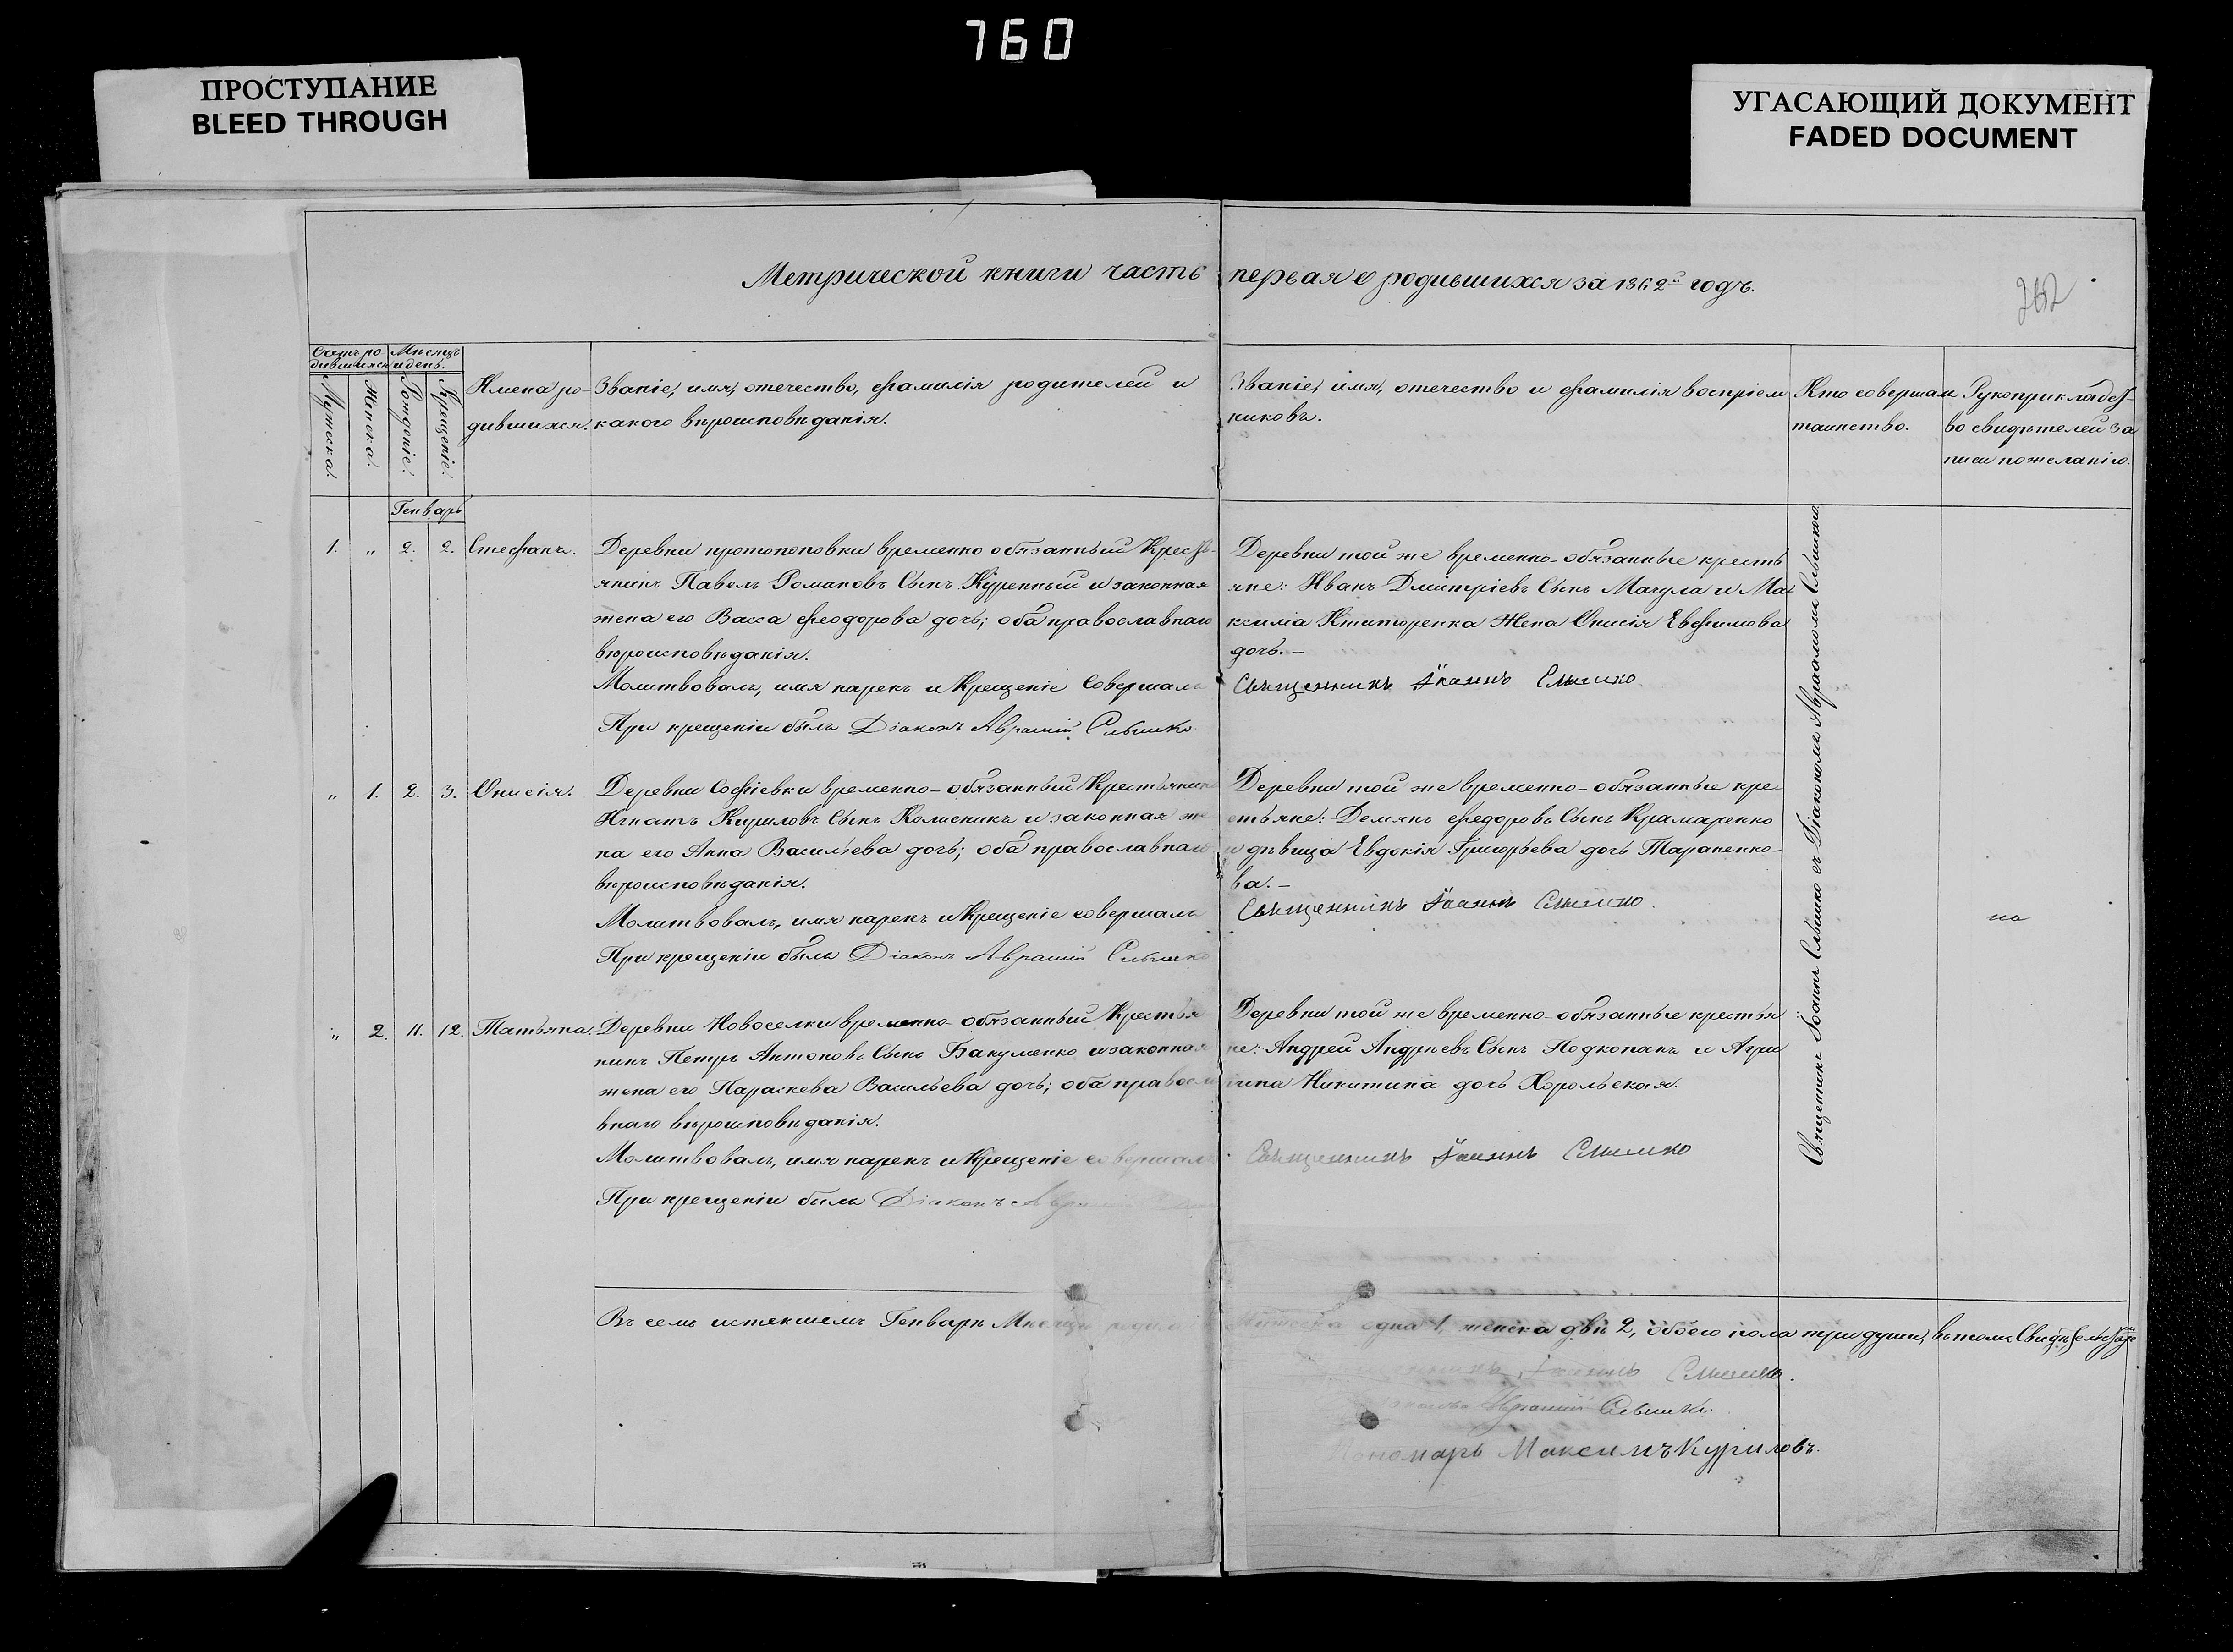 760
ПРОСТУПАНИЕ
BLEED THROUGH
УГАСАЮЩИЙ ДОКУМЕНТ
FADED DOCUMENT
Метрической книги часть первая о родившихся за 1862й годъ.
262
Счетъ ро-
дившихся
Мѣсяцъ
и день.
Мужеска.
Женска.
Рожденіе.
Крещеніе.
Имена ро-
дившихся.
Званіе, имя, отечество, фамилія родителей и
какого вѣроисповѣданія.
Званіе, имя, отечество и фамилія воспріем
никовъ.
Кто совершалъ
таинство.
Рукоприкладст-
во свидѣтелей за
писи по желанію.
Генварь
1. „ 2. 2. Стефанъ.
Деревни Протопоповки временно обязанный Кресть-
янинъ Павелъ Романовъ Сынъ Куренный и законная
жена его Васса Феодорова дочь; оба православнаго
вѣроисповѣданія.
Молитвовалъ, имя нарекъ и Крещеніе Совершалъ
При крещеніи былъ Діаконъ Аврамій Слышко
Деревни той же временно-обязанные кресть
яне: Иванъ Дмитріевъ Сынъ Мачула и Ма
ксима Ктиторенка Жена Онисія Евфимова
дочь.-
Священникъ Іоаннъ Слышко
„ 1. 2. 3. Онисія.
Деревни Софіевки временно-обязанный Крестьянинъ
Игнатъ Кириловъ Сынъ Колисникъ и законная же
на его Анна Васильева дочь; оба православнаго
вѣроисповѣданія.
Молитвовалъ, имя нарекъ и Крещеніе совершалъ
При крещеніи былъ Діаконъ Аврамій Слышко
Деревни той же временно-обязанные кре
стьяне: Демянъ Федоровъ Сынъ Крамаренко
и дѣвица Евдокія Григорьева дочь Тараненко-
ва.-
Священникъ Іоаннъ Слышко.
„ 2. 11. 12. Татьяна.
Деревни Новоселки временно-обязанный Крестья
нинъ Петръ Антоновъ Сынъ Бакуменко и законная
жена его Параскева Васильева дочь; оба правосла
внаго вѣроисповѣданія.
Молитвовалъ, имя нарекъ и Крещеніе совершалъ
При крещеніи былъ Діаконъ Аврамій
Деревни той же временно-обязанные крестья
не: Андрей Андреевъ Сынъ Подкопанъ и Агри
пина Никитина дочь Хорольская.
Священникъ Іоаннъ Слышко
Священникъ Іоаннъ Слышко съ Діакономъ Авраамомъ Слышкого
Въ семъ истекшемъ Генварѣ Мѣсяцѣ Мужеска одна 1, женска двѣ 2, обоего пола три души, въ томъ
Іоаннъ Слышко.
Аврамій Слышко.
Пономарь Максимъ Куриловъ.